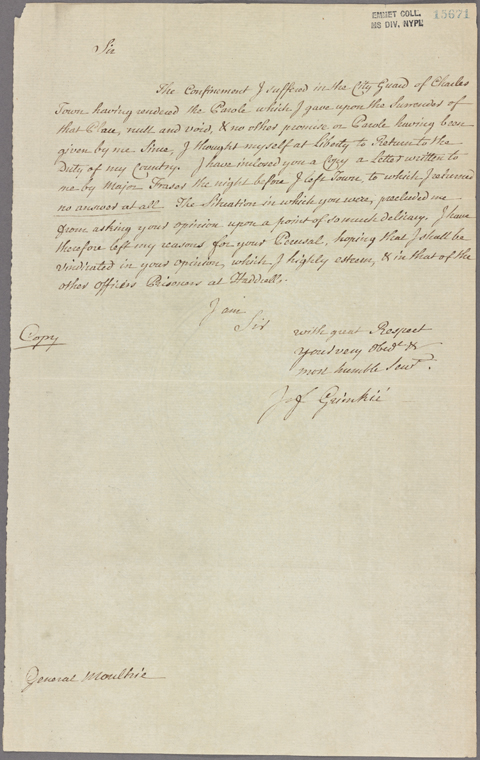 EMMET COLL.
MS DIV. NYPL
15671
Sir
The Confinement I suffered in the City Guard of Charles
Town having rendered the Parole which I gave upon the Surrender of
that Place, null and void, & no other promise or Parole having been
given by me Since, I thought myself at Liberty to Return to the
Duty of my Country. I have inclosed you a Copy a Letter written to
me by Major Fraser the night before I left Town, to which I returned
no answer at all. The Situation in which you were, precluded me
from asking your opinion upon a point of so much delicacy. I have
therefore left my reasons for your Perusal, hoping that I shall be
vindicated in your opinion, which I highly esteem, & in that of the
other Officers Prisoners at Haddrells.
I am
Sir
with great Respect
Your very Obed.t &
most humble Serv.t
Copy
J. f. Grimkié
General Moultrie